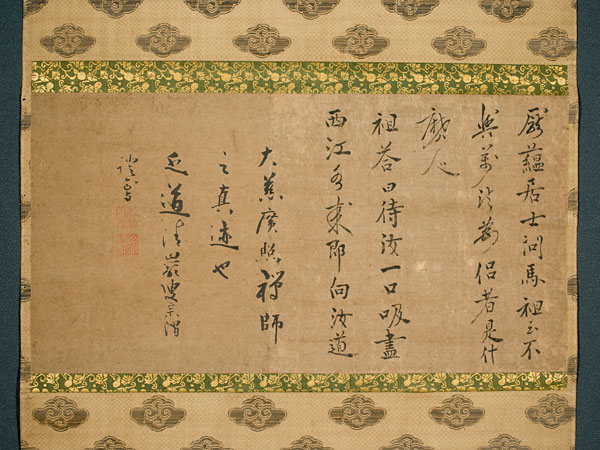 龐蘊居士問馬祖云不
與萬法為侶者是什
麼人
祖答曰待汝一口吸盡
西江水來即向汝道
大慈廣照禪師
之真迹也
道清巖叟宗渭
證焉